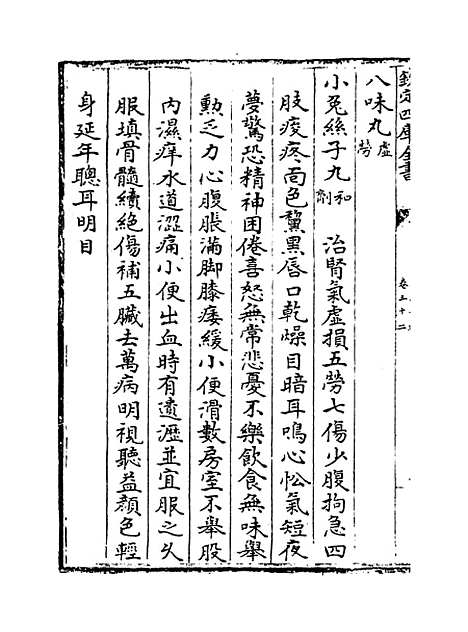 欽定四庫全書
八味丸虛勞
小兔絲子丸和劑 治腎氣虛損五勞七傷少腹拘急四
肢痠疼面色黧黑唇口乾燥目暗耳鳴心忪氣短夜
夢驚恐精神困倦喜怒無常悲憂不樂飲食無味舉
動乏力心腹脹滿脚膝痿緩小便滑數房室不舉股
內濕痒水道澀痛小便出血時有遺瀝並宜服之久
服填骨髓續絕傷補五臟去萬病明視聽益顏色輕
身延年聰耳明目